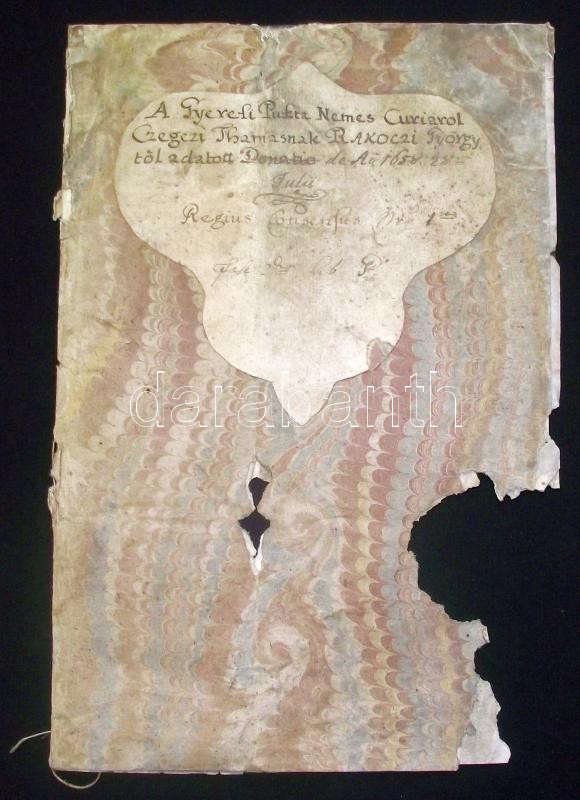 A Gyereli Pukta Nemes Curiarol
Czegezi Thamasnak RAKOCZI György
től adatott Donatio de Aō 1658. 28
Julii
Regius Consensus
darabanth